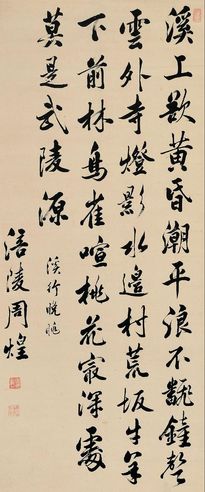 溪上欲黃昏潮平浪不翻鐘聲
雲外寺燈影水邊村荒坂牛羊
下前林鳥雀喧桃花最深處
莫是武陵源
溪行晚眺
涪陵周煌